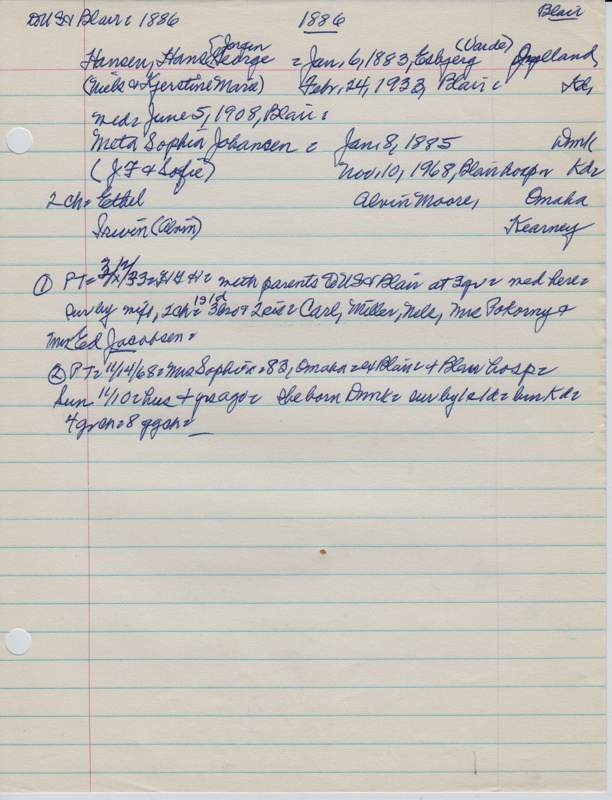 DUS & Blair = 1886 1886 Blair
Jorgen
Hansen, Hans George = Jan. 6, 1883, Esbjerg (Varde) Jylland,
(Niels & Kjerstine Marie) Febr. 24, 1933, Blair = Kd=
med= June 5, 1908, Blair =
Meta Sophia Johansen = Jan. 8, 1885 Dmk
(J.F & Sofie) Nov. 10, 1968, Blair hosp= Kd=
2 ch= Ethel Alvin Moore, Omaha
Irwin (Alvin) Kearney
① PT= with parents to US & Blair at 3 y= = med here=
sur by wife, 2ch= 1s1d 3bro & 2sis= Carl, Miller, Nels, Mrs Pokorny &
Mrs Ed Jacobsen=
② PT= 11/14/68= Mrs Sophia = 83, Omaha= ex Blair= + Blair hosp=
Sun 11/10= hus + yrs ago= she born Dmk= sur by 1s1d= bur Kd=
4 grch= 8 ggch=